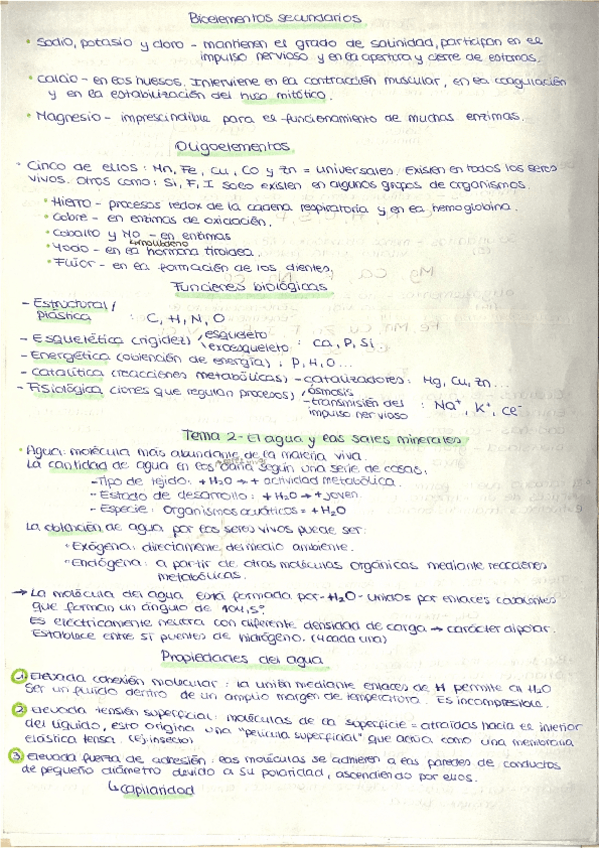 Bioelementos secundarios.
• Sodio, potasio y cloro - mantienen el grado de salinidad, participan en el
impulso nervioso y en la apertura y cierre de estomas.
• Calcio - en los huesos. Interviene en la contracción muscular, en la coagulación
y en la estabilización del huso mitótico.
• Magnesio - imprescindible para el funcionamiento de muchas enzimas.
Oligoelementos
• Cinco de ellos: Mn, Fe, Cu, Co y Zn = universales. Existen en todos los seres
vivos. Otros como: Si, F, I solo existen en algunos grupos de organismos.
• Hierro - procesos redox de la cadena respiratoria y en la hemoglobina.
• Cobre - en enzimas de oxidación.
• Cobalto y Mo - en enzimas
molibdeno
• Yodo - en la hormona tiroidea.
• Flúor - en la formación de los dientes.
Funciones biológicas
- Estructural /
plástica : C, H, N, O
- Esquelética (rigidez) esqueleto
exoesqueleto : Ca, P, Si
- Energética (obtención de energía) : P, H, O...
- Catalítica (reacciones metabólicas) - catalizadores : Mg, Cu, Zn...
- Fisiológica (iones que regulan procesos) ósmosis
- transmisión del : Na⁺, K⁺, Cl⁻
impulso nervioso
Tema 2 - El agua y las sales minerales
• Agua: molécula más abundante de la materia viva.
La cantidad de agua en los varía según una serie de cosas:
- Tipo de tejido: + H₂O → + actividad metabólica.
- Estado de desarrollo: + H₂O → + joven.
- Especie: organismos acuáticos = + H₂O
La obtención de agua por los seres vivos puede ser:
• Exógena: directamente del medio ambiente.
• Endógena: a partir de otras moléculas orgánicas mediante reacciones
metabólicas.
→ La molécula del agua está formada por - H₂O - unidos por enlaces covalentes
que forman un ángulo de 104,5º.
Es eléctricamente neutra con diferente densidad de carga → carácter dipolar.
Establece entre sí puentes de hidrógeno. (4 cada una)
Propiedades del agua
1. Elevada cohesión molecular: la unión mediante enlaces de H permite al H₂O
ser un fluido dentro de un amplio margen de temperatura. Es incompresible.
2. Elevada tensión superficial: moléculas de la superficie = atraídas hacia el interior
del líquido, esto origina una "película superficial" que actúa como una membrana
elástica tensa. (Ej: insecto)
3. Elevada fuerza de adhesión: las moléculas se adhieren a las paredes de conductos
de pequeño diámetro devido a su polaridad, ascendiendo por ellos.
↳ capilaridad